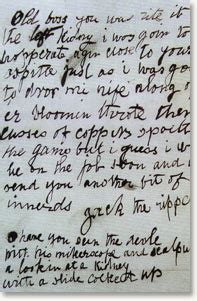 Old boss you was rite it
the left kidny i was goin to
hoperate agin close to your
ospitle just as i was go
to dror mi nife along o
er bloomin throte them
cusses of coppers spoilt
the game but i guess i w
be on the job soon and
send you another bit of
innerds
Jack the rippe
O have you seen the devle
with his mikerscope and scalpu
a lookin at a kidney
with a slide cocked up